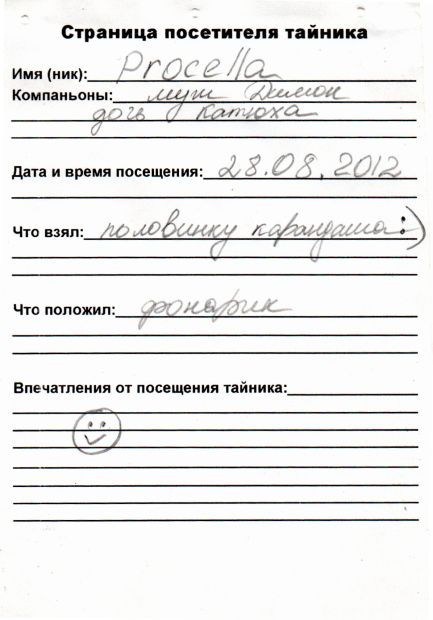 Страница посетителя тайника
Имя (ник): Procella
Компаньоны: муж Димон
дочь Катюха
Дата и время посещения: 28.08.2012
Что взял: половинку карандаша :)
Что положил: фонарик
Впечатления от посещения тайника: